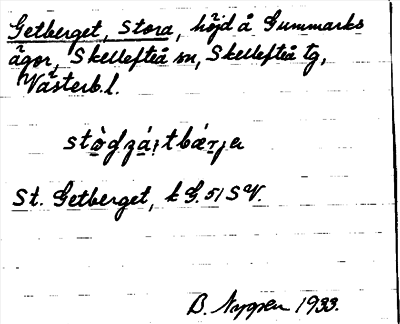 Getberget, Stora, höjd å Gummarks
ägor, Skellefteå sn, Skellefteå tg,
Västerb. l.
St. Getberget, k G. 51 S V.
B. Nygren 1933.